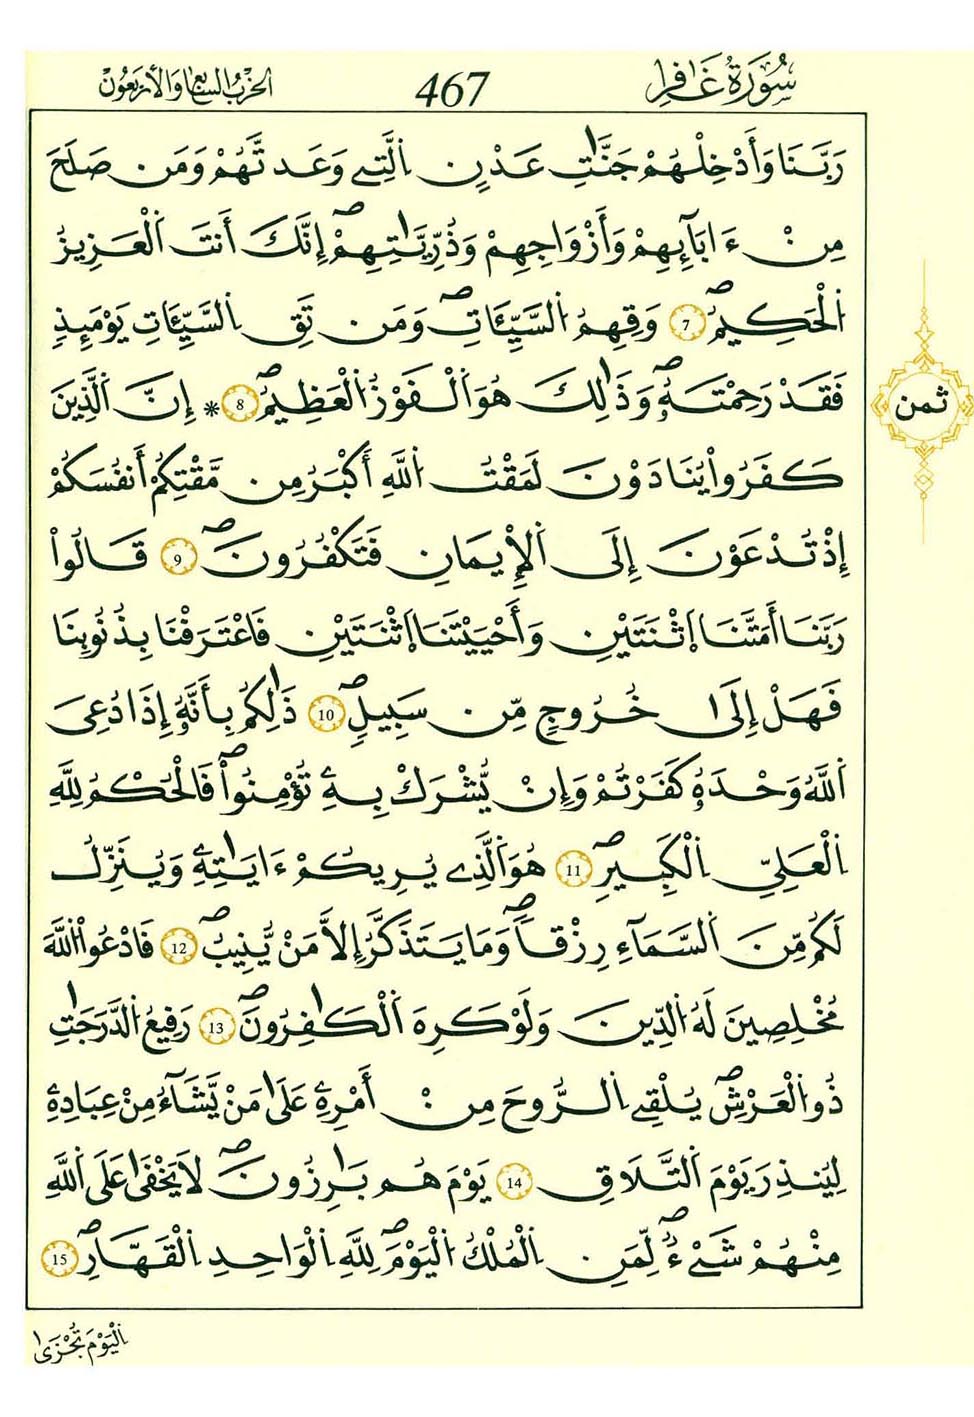 سُورَةُ غَافِرٍ
467
الحِزْبُ السَّابِعُ وَالأَرْبَعُونَ
رَبَّنَا وَأَدْخِلْهُمْ جَنَّٰتِ عَدْنٍ اِلتِے وَعَدتَّهُمْ وَمَن صَلَحَ
مِنَ ـابَآئِهِمْ وَأَزْوَٰجِهِمْ وَذُرِّيَّٰتِهِمُۥٓ إِنَّكَ أَنتَ اَلْعَزِيزُ
اُلْحَكِيمُ 7 وَقِهِمُ اُلسَّيِّـَٔاتِ وَمَن تَقِ اِلسَّيِّـَٔاتِ يَوْمَئِذٍ
فَقَدْ رَحِمْتَهُۥ وَذَٰلِكَ هُوَ اَلْفَوْزُ اُلْعَظِيمُ 8 * إِنَّ اَلذِينَ
كَفَرُواْ يُنَادَوْنَ لَمَقْتُ اُللَّهِ أَكْبَرُ مِن مَّقْتِكُمْ أَنفُسَكُمْ
إِذْ تُدْعَوْنَ إِلَى اَلْإِيمَٰنِ فَتَكْفُرُونَ 9 قَالُواْ
رَبَّنَا أَمَتَّنَا إَثْنَتَيْنِ وَأَحْيَيْتَنَا إَثْنَتَيْنِ فَاعْتَرَفْنَا بِذُنُوبِنَا
فَهَلِ اِلَىٰ خُرُوجٍ مِّن سَبِيلٍ 10 ذَٰلِكُم بِأَنَّهُۥ إِذَا دُعِيَ
اَللَّهُ وَحْدَهُۥ كَفَرْتُمْ وَإِنْ يُّشْرَكْ بِهِۦ تُؤْمِنُواْ فَالْحُكْمُ لِلَّهِ
اِلْعَلِيِّ اِلْكَبِيرِ 11 هُوَ اَلذِے يُرِيكُمُۥٓ ءَايَٰتِهِۦ وَيُنَزِّلُ
لَكُم مِّنَ اَلسَّمَآءِ رِزْقاً وَمَا يَتَذَكَّرُ إِلاَّ مَنْ يُّنِيبُ 12 فَادْعُواْ اُللَّهَ
مُخْلِصِينَ لَهُ اُلدِّينَ وَلَوْ كَرِهَ اَلْكَٰفِرُونَ 13 رَفِيعُ اُلدَّرَجَٰتِ
ذُو اُلْعَرْشِ يُلْقِے اِلرُّوحَ مِنَ اَمْرِهِۦ عَلَىٰ مَنْ يَّشَآءُ مِنْ عِبَادِهِۦ
لِيُنذِرَ يَوْمَ اَلتَّلَاقِ 14 يَوْمَ هُم بَٰرِزُونَ لَا يَخْفَىٰ عَلَى اَللَّهِ
مِنْهُمْ شَےْءٌ لِّمَنِ اِلْمُلْكُ اُلْيَوْمَ لِلَّهِ اِلْوَاحِدِ اِلْقَهَّارِ 15
ثمن
اَلْيَوْمَ تُجْزَىٰ